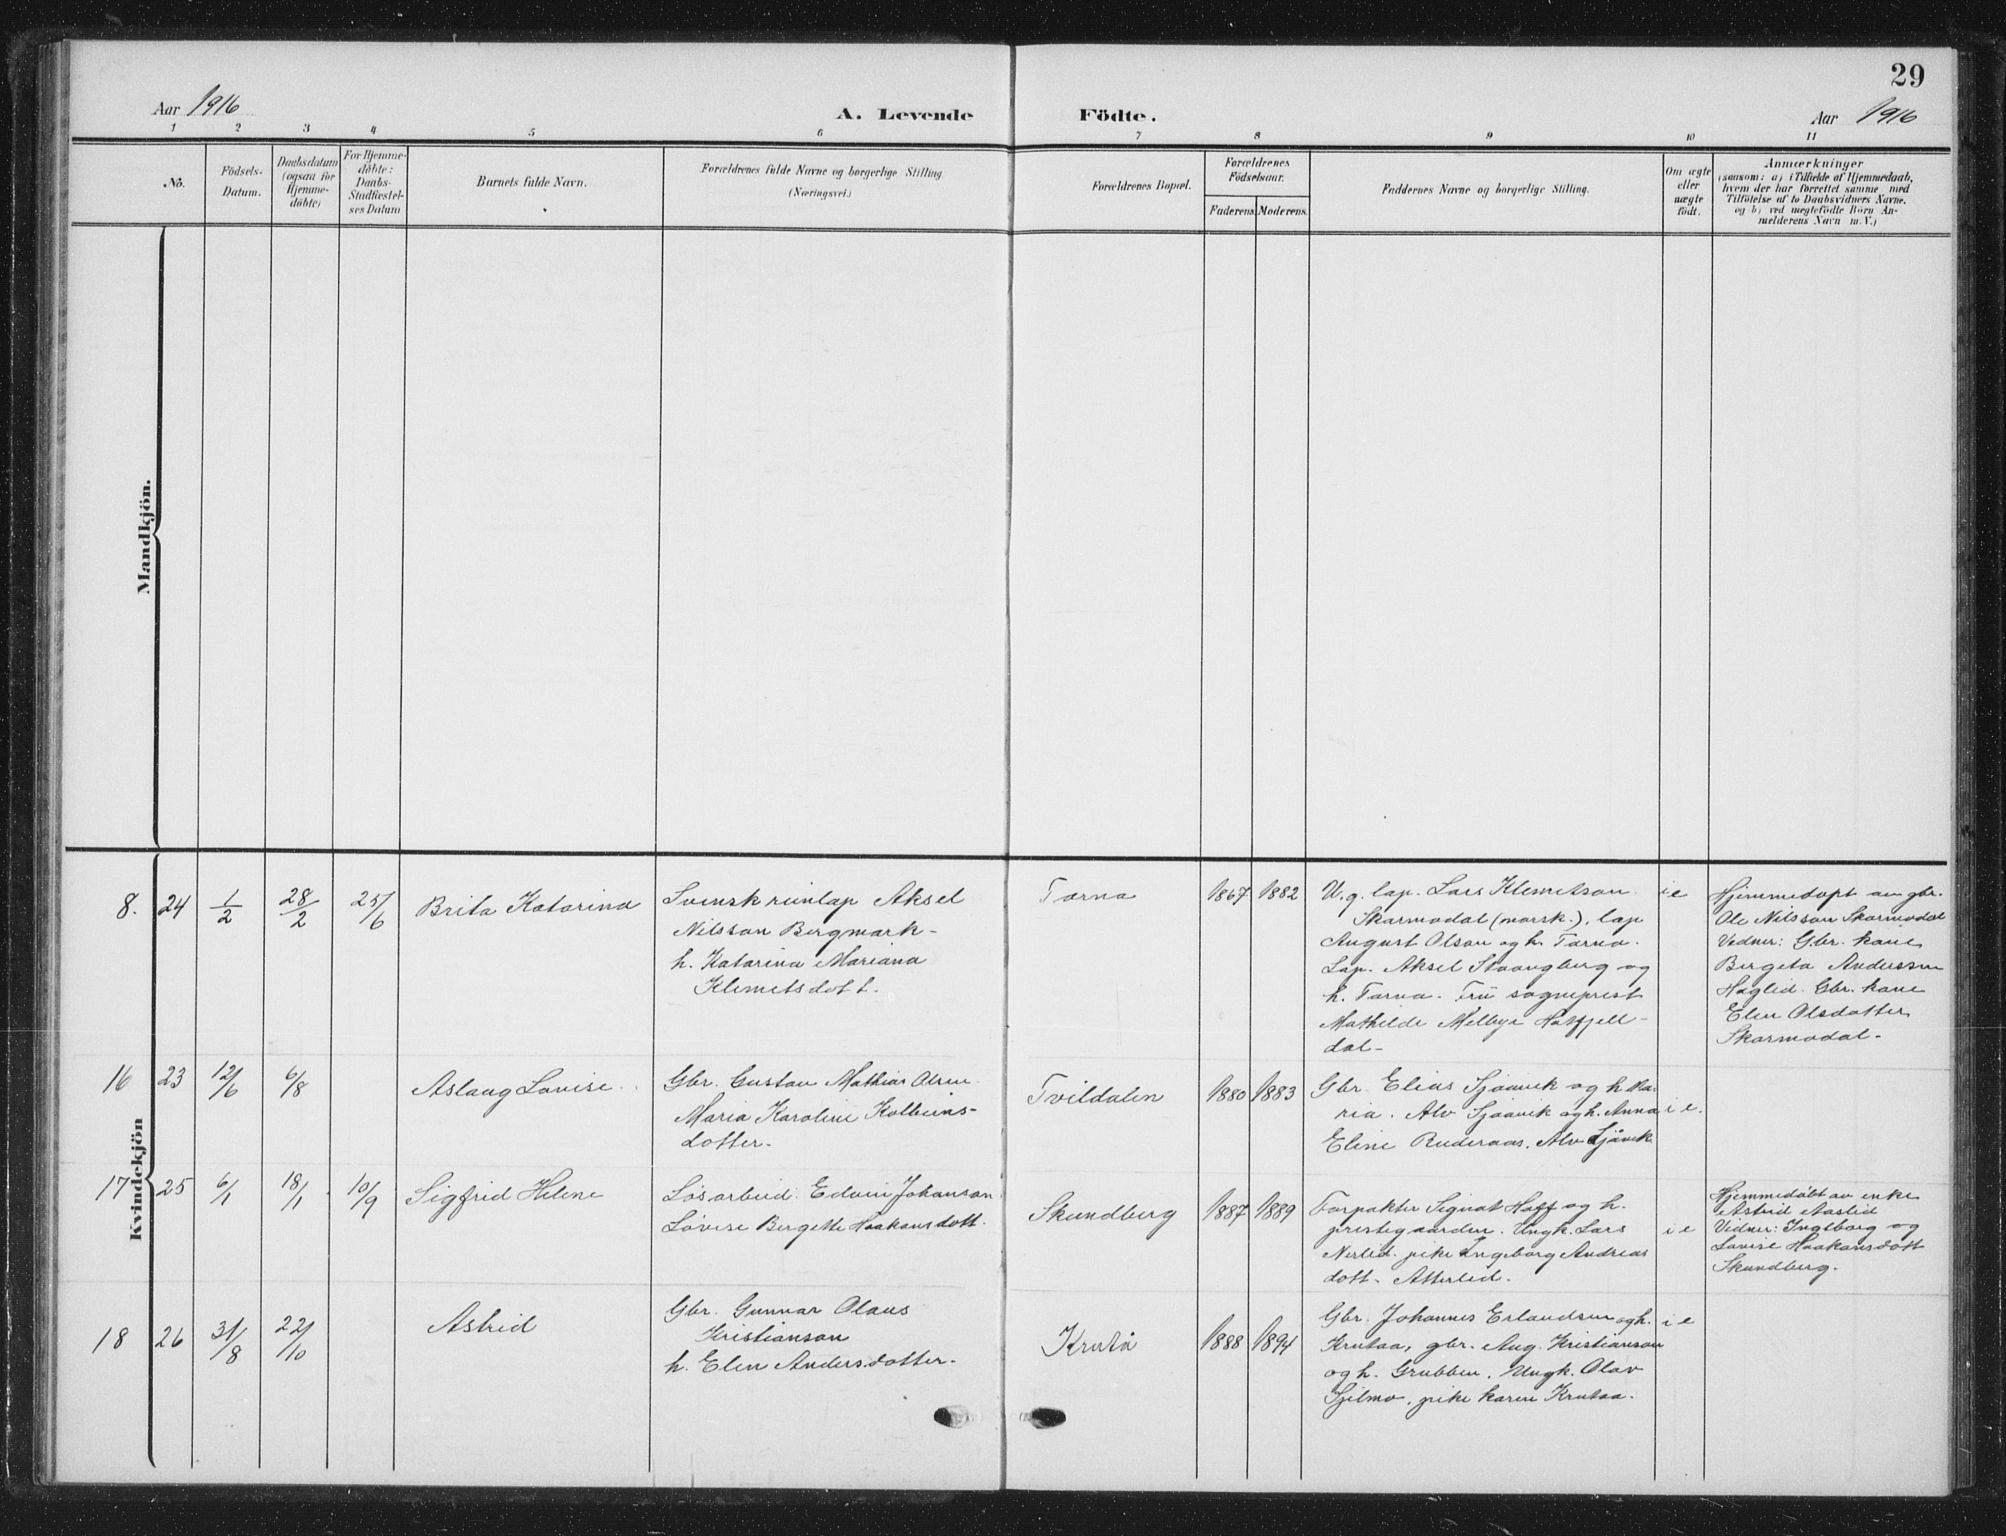 29
Aar 1916
A. Levende Födte.
Aar 1916
1 2 3 4 5 6 7 8 9 10 11
No.
Födsels-
Datum.
Daabsdatum
(ogsaa for
Hjemme-
döbte)
For Hjemme-
döbte:
Daabs-
Stadfæstel-
ses Datum
Barnets fulde Navn.
Forældrenes fulde Navne og borgerlige Stilling
(Næringsvei.)
Forældrenes Bopæl.
Forældrenes
Födselsaar.
Faderens Moderens.
Faddernes Navne og borgerlige Stilling.
Om ægte
eller
uægte
födt.
Anmærkninger
(saasom: a) i Tilfælde af Hjemmedaab,
hvem der har forrettet samme med
Tilföielse af to Daabsvidners Navne.
og b) ved uægtefödte Börn An-
melderens Navn m. V.)
Mandkjön.
Kvindekjön
8. 24 1/2 28/2 25/6
Brita Katarina
Svensk rünlap Aksel
Nilsson Bergmark-
h. Katarina Mariana
Klemetsdott.
Tarna
1867 1882
U. g. lap. Lars Klemetson
Skarmodal (norsk.), lap
August Olson og h. Tarna.
Lap. Aksel Staangberg og
h. Tarna. Frü sogneprest
Mathilde Melbye Hatfjell-
dal-
i e
Hjemmedøpt av gbr.
Ole Nilsson Skarmodal
Vidner: Gbr. kone
Bergeta Anderssen
Hagled. Gbr. kone
Elen Olsdotter
Skarmodal.
16 23 12/6 6/8
Aslaug Lovise
Gbr. Gustav Mathias Olsen
Maria Karoline Kolbeins-
dotter.
Tvildalen
1880 1883
Gbr. Elias Sjaavik og h. Ma-
ria. Alv Sjaavik og h. Anna
Eline Ruderaas, Alv Sjåvik
i e.
17 25 6/1 18/1 10/9
Sigfrid Helene
Løsarbeid. Edvin Johanson
Lovise Bergette Haakansdott.
Skundberg
1887 1889
Forpakter Signat Haff og h.
prestegaarden. Ungk. Lars
Nerlid. pike Ingeborg Andreas
dott. Atterlid.
i e
Hjemmedøbt av enke
Astrid Aaslid
Vidner: Ingeborg og
Lovise Haakansdott
Skundberg.
18 26 31/8 22/10
Astrid
Gbr. Gunnar Olaus
Kristianson
h. Elen Andersdotter.
Krutå
1888 1894
Gbr. Johannes Erlandsen og h.
Krutaa, gbr. Aug. Kristianson
og h. Grubben. Ungk. Olav
Sjilmo, pike Karen Krutaa.
i e